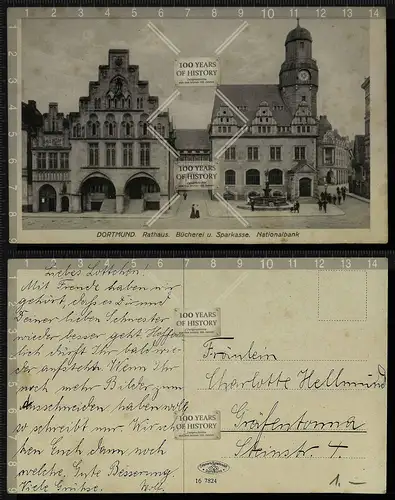 100 YEARS
OF HISTORY
100 YEARS
OF HISTORY
DORTMUND. Rathaus. Bücherei u. Sparkasse. Nationalbank
Liebes Lottchen!
Mit Freude haben wir
gehört, daß es Dir und
Deiner lieben Schwester
wieder besser geht. Hoffent
lich dürft Ihr bald wie-
der aufstehen. Wenn Ihr
noch mehr Bilder zum
Ausschneiden haben wollt
so schreibt nur. Wir schi
ken Euch dann noch
welche. Gute Besserung.
Viele Grüße.
100 YEARS
OF HISTORY
100 YEARS
OF HISTORY
Fräulein
Charlotte Hellmund
Gräfentonna
Steinstr. 4.
16 7824
1.-